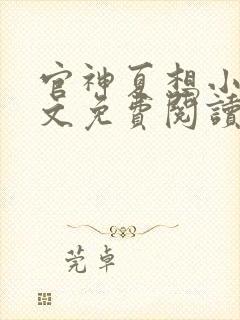 官神夏想小
文免費閱讀
莞卓